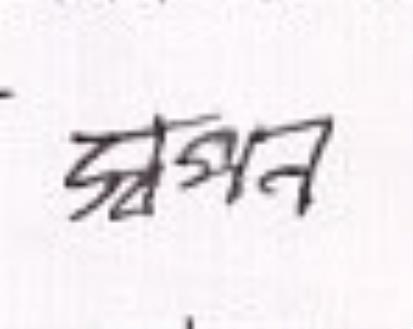 স্বপন